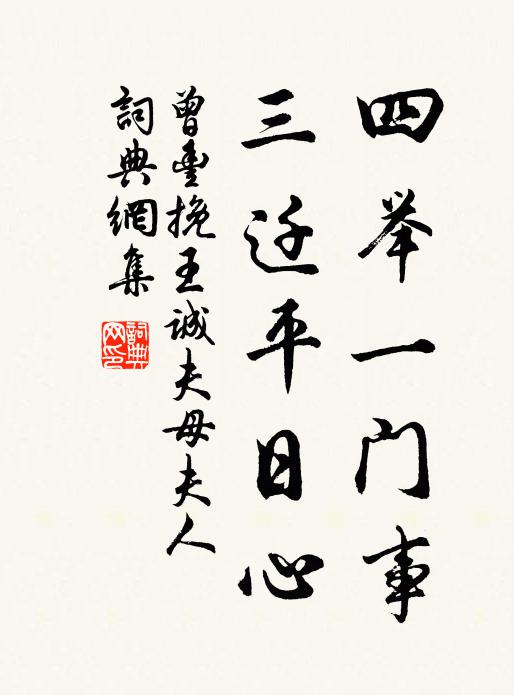 四举一门事
三迁平日心
曾丰挽王诚夫母夫人
詞典網集
詞典網印